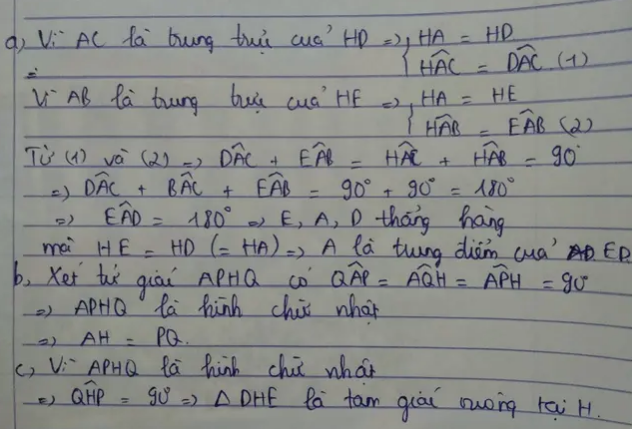 a, Vì AC là trung trực của HD => { HA = HD
HÂC = DÂC (1)
Vì AB là trung trực của HE => { HA = HE
HÂB = EÂB (2)
Từ (1) và (2) => DÂC + EÂB = HÂC + HÂB = 90°
=> DÂC + BÂC + EÂB = 90° + 90° = 180°
=> EÂD = 180° => E, A, D thẳng hàng
mà HE = HD (= HA) => A là trung điểm của ED
b, Xét tứ giác APHQ có QÂP = AQ̂H = AP̂H = 90°
=> APHQ là hình chữ nhật
=> AH = PQ.
c, Vì APHQ là hình chữ nhật
=> QĤP = 90° => Δ DHE là tam giác vuông tại H.